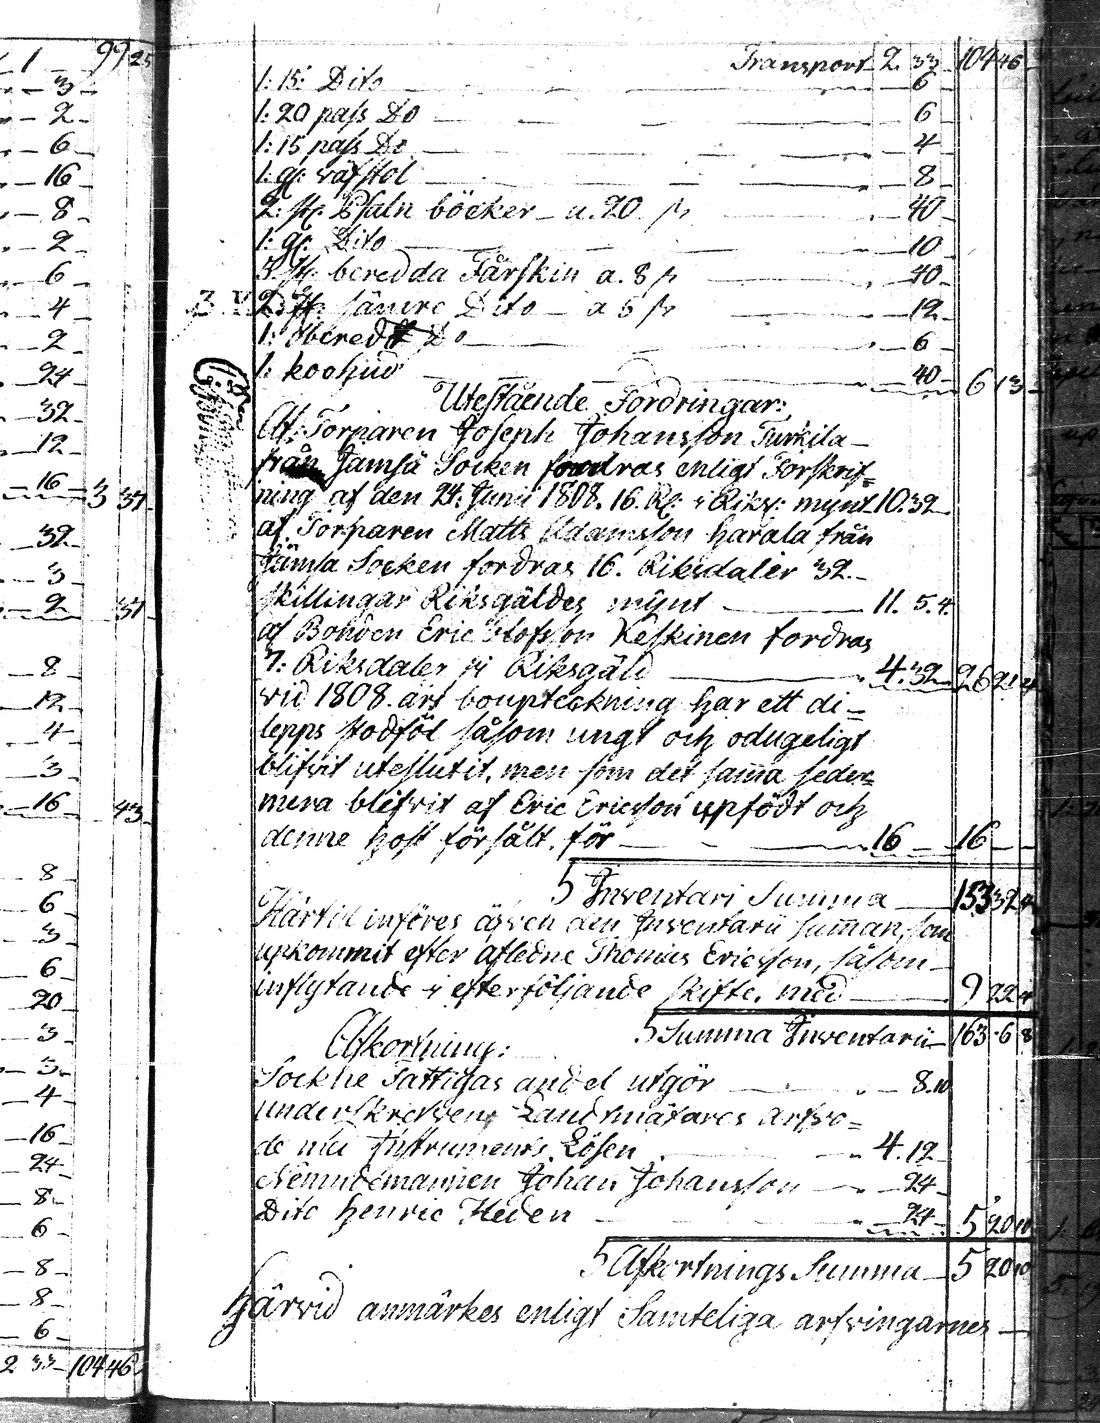 1 99 25
3
2
6
16
8
2
6
4
2
24
32
12
16 3 37
32
3
2 37
8
12
4
3
16 43
8
6
3
6
20
3
3
4
16
24
8
6
8
8
6
2 33 104 46
Transport 2. 33 104 46
1: 15: Dito 6
1: 20 pass Do 6
1: 15 pass Do 4
1: gl: väfstol 8
2: st: Psalm böcker a. 20 s 40
1: gl: Dito 10
5. st: beredda Fårskin a. 8 s 40
2: st: sämre Dito a 6 s 12
1: obered Do 6
1: kohud 40 6 13
Utestående Fordringar:
Af: Torparen Joseph Johansson Turkila
från Jamsä Socken fordras enligt Förskrif=
ning af den 24: Junii 1808. 16. Rd: i Riksg: mynt 10. 32
af Torparen Matts Adamsson Harala från
Jämsä Socken fordras 16. Riksdaler 32.
skillingar Riksgäldes mynt 11. 5. 4
af Bonden Eric Olofsson Keskinen fordras
7: Riksdaler i Riksgäld 4. 32 26 21 4
vid 1808. års bouptekning har ett di=
lepps stodföl såsom ungt och odugeligt
blifvit uteslutit, men som det samma seder=
mera blifvit af Eric Ericsson upfödt och
denne höst försålt. för 16 16
S Inventarii Summa 153 32 4
Härtil införes äfven den Inventarii summan, som
upkommit efter afledne Thomas Ericsson, såsom
inflytande i efterföljande skifte, med 9 22 4
S Summa Inventarii 163 6 8
Afkortning:
Sockne Fattigas andel utgör 8. 10
underskrefven Landtmätares arfvo=
de med Instruments Lösen 4. 12
Nemndemannen Johan Johansson 24
Dito Henric Heden 24 5 20 10
S Afkortnings Summa 5 20 10
Härvid anmärkes enligt Samteliga arfvingarnes